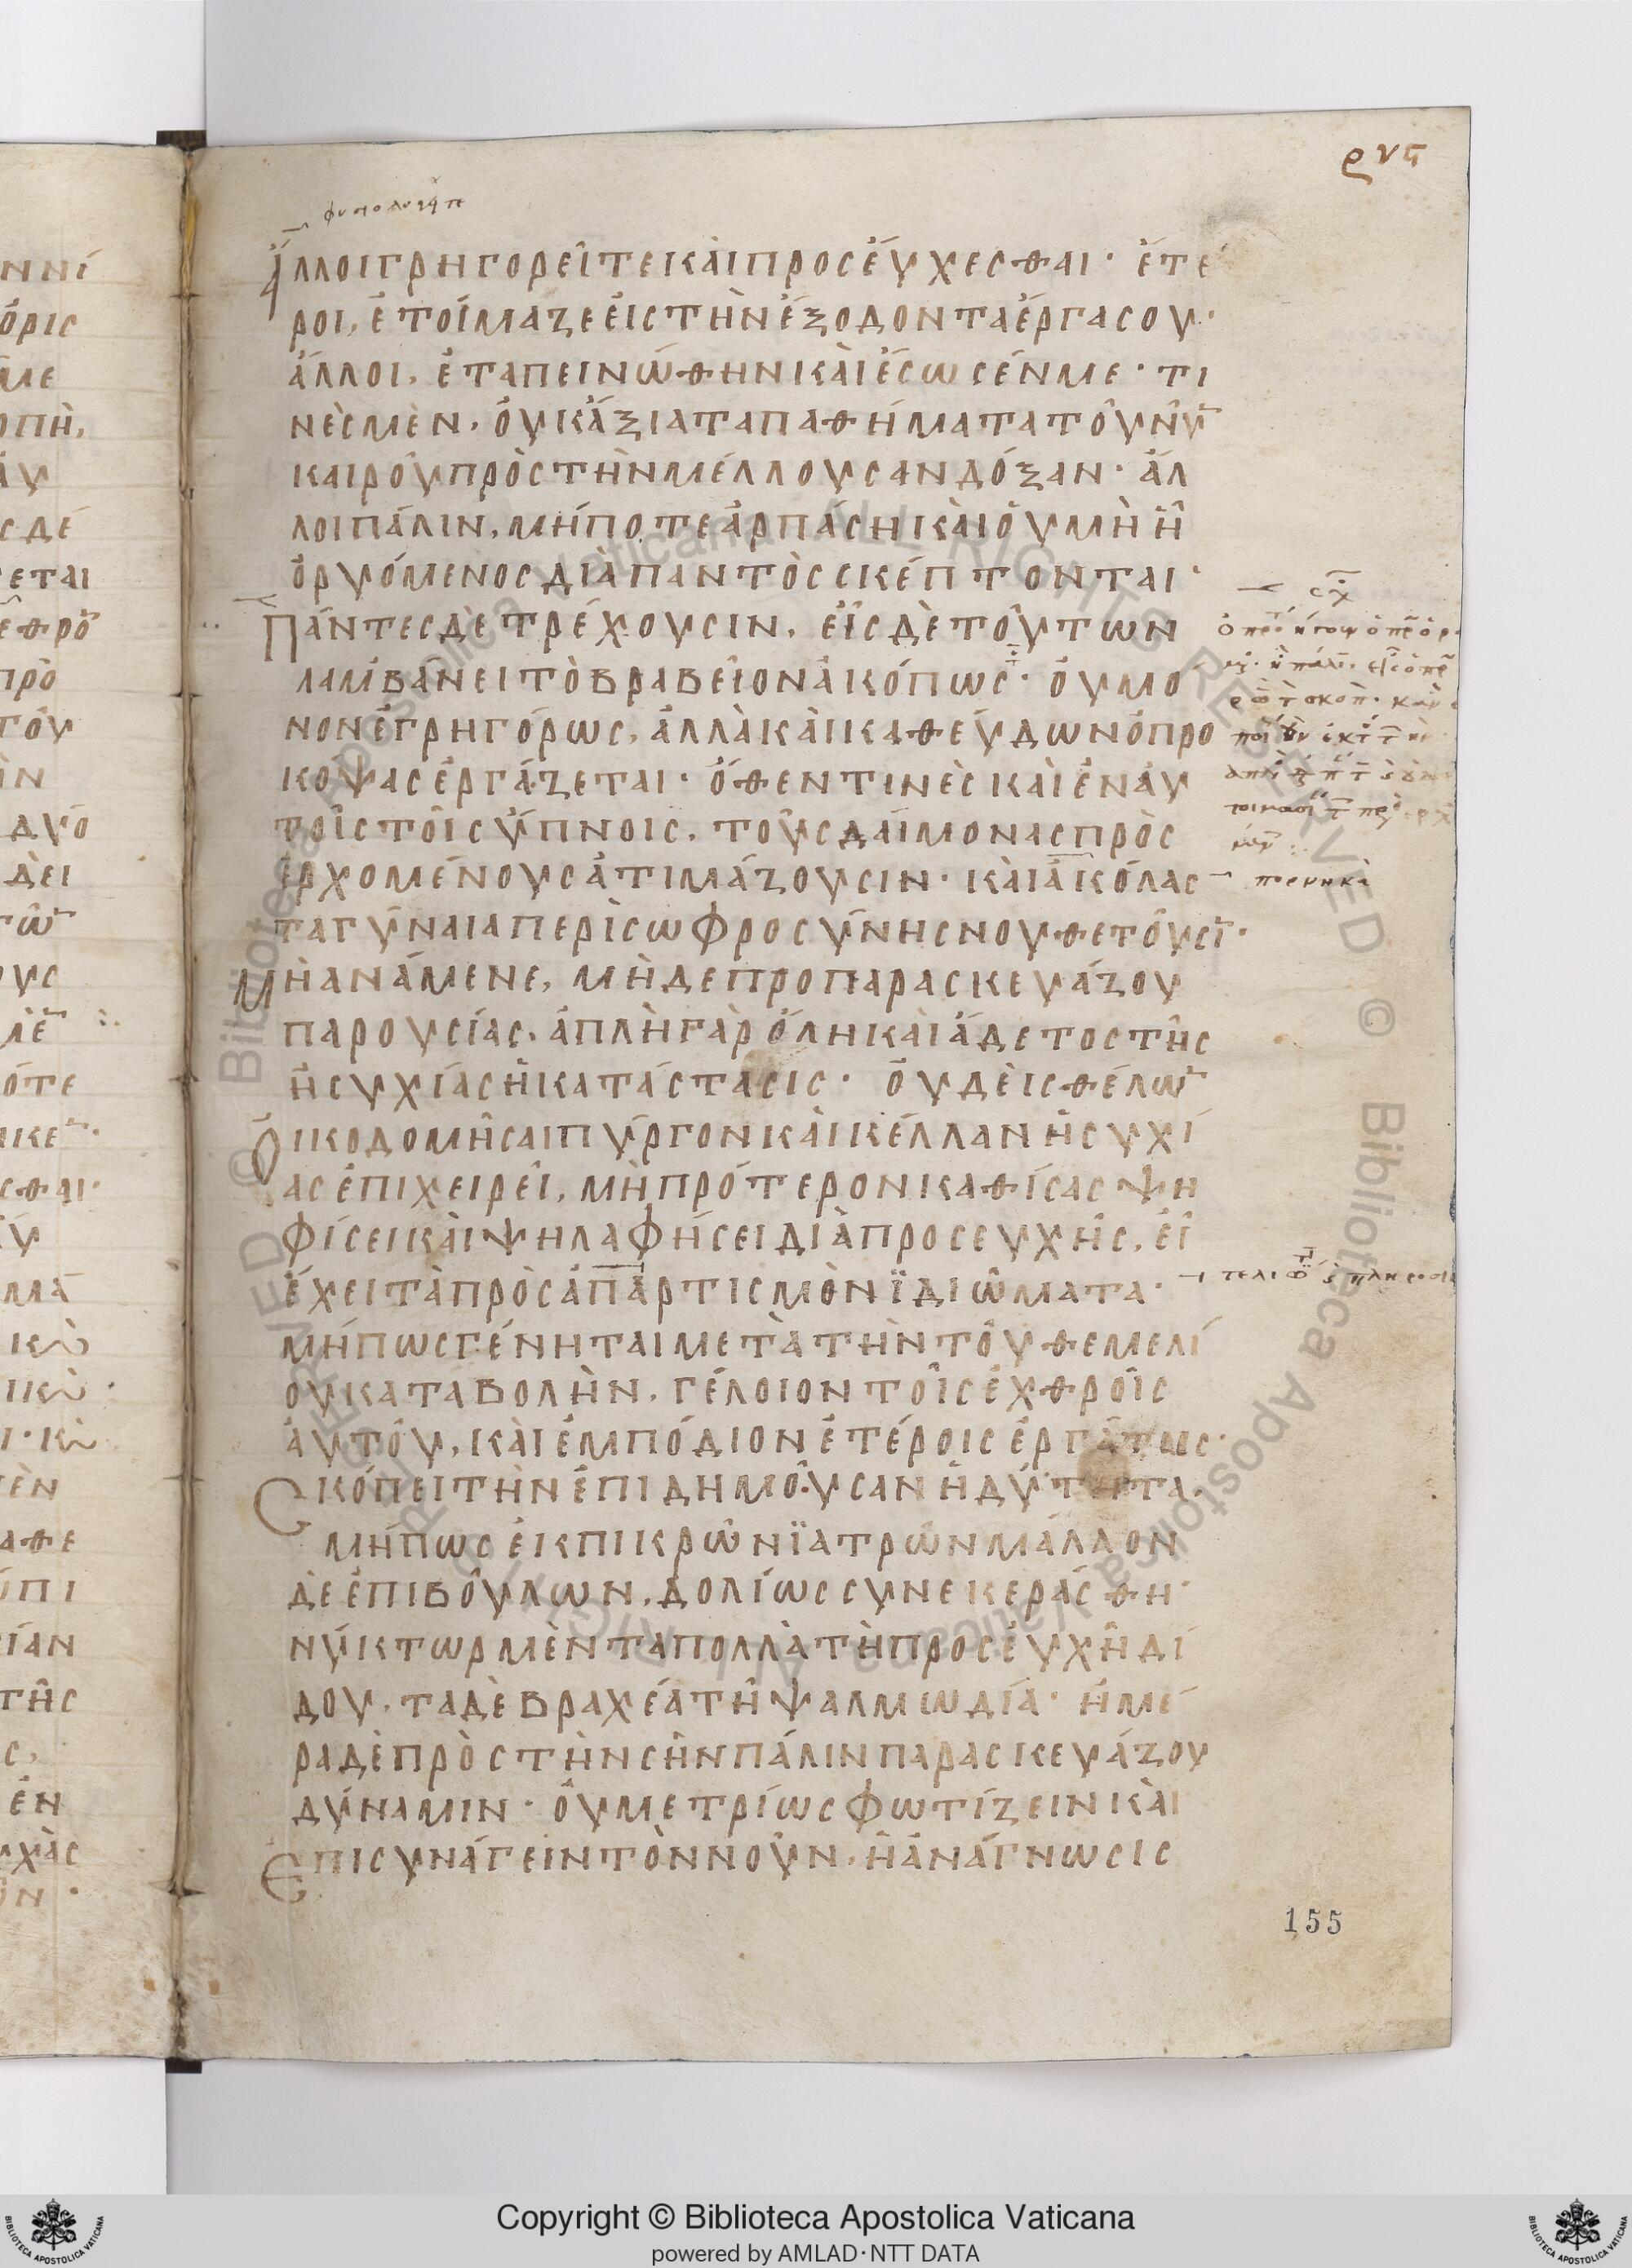 ρνϛ
ἄλλοι γρηγορεῖτε καὶ προσεύχεσθαι· ἕτε
ροι, ἑτοίμαζε εἰς τὴν ἔξοδον τὰ ἔργα σου·
ἄλλοι, ἐταπεινώθην καὶ ἔσωσέν με· τι
νὲς μὲν, οὐκ ἄξια τὰ παθήματα τοῦ νῦ
καιροῦ πρὸς τὴν μέλλουσαν δόξαν· ἄλ
λοι πάλιν, μήποτε ἁρπάση καὶ οὐ μὴ ἦ
ὁ ρυόμενος διαπαντὸς σκέπτονται·
Πάντες δὲ τρέχουσιν, εἷς δὲ τούτων
λαμβάνει τὸ βραβεῖον ἀκόπως· οὐ μο
νον ἐγρηγόρως, ἀλλὰ καὶ καθεύδων ὁ προ
κοψας ἐργάζεται· ὅθεν τινὲς καὶ ἐν αὐ
τοῖς τοῖς ὕπνοις, τοὺς δαίμονας προσ
ερχομένους ἀτιμάζουσιν· καὶ ἀκόλασ
τα γύναια περὶ σωφροσύνης νουθετοῦσῖ·
Μὴ ἀνάμενε, μὴδε προπαρασκευάζου
παρουσίας, ἁπλὴ γὰρ ὅλη καὶ ἄδετος τῆς
ἡσυχίας ἡ κατάστασις· οὐδεὶς θέλω
οἰκοδομῆσαι πύργον καὶ κέλλαν ἡσυχί
ας ἐπιχειρεῖ, μὴ πρότερον καθίσας ψη
φίσει καὶ ψηλαφήσει διὰ προσευχῆς, εἰ
ἔχει τὰ πρὸς ἀπαρτισμὸν ϊδιώματα·
μήπως γένηται μετὰ τὴν τοῦ θεμελί
ου καταβολὴν, γέλοιον τοῖς ἐχθροῖς
αὐτοῦ, καὶ ἐμπόδιον ἑτέροις ἐργάταις·
Σκόπει τὴν ἐπιδημοῦσαν ἡδύτητα,
μήπως ἐκ πικρῶν ϊατρῶν μάλλον
δὲ ἐπιβούλων, δολίως συνεκεράσθη·
νύκτωρ μὲν τὰ πολλὰ τὴ προσευχῆ δί
δου, τὰ δὲ βραχέα τῆ ψαλμωδία· ἡμέ
ρα δὲ πρὸς τὴν σὴν πάλιν παρασκευάζου
δύναμιν· οὐ μετρίως φωτίζειν καὶ
ἐπισυνάγειν τὸν νοῦν, ἡ ἀνάγνωσις
155
Copyright © Biblioteca Apostolica Vaticana
powered by AMLAD·NTT DATA